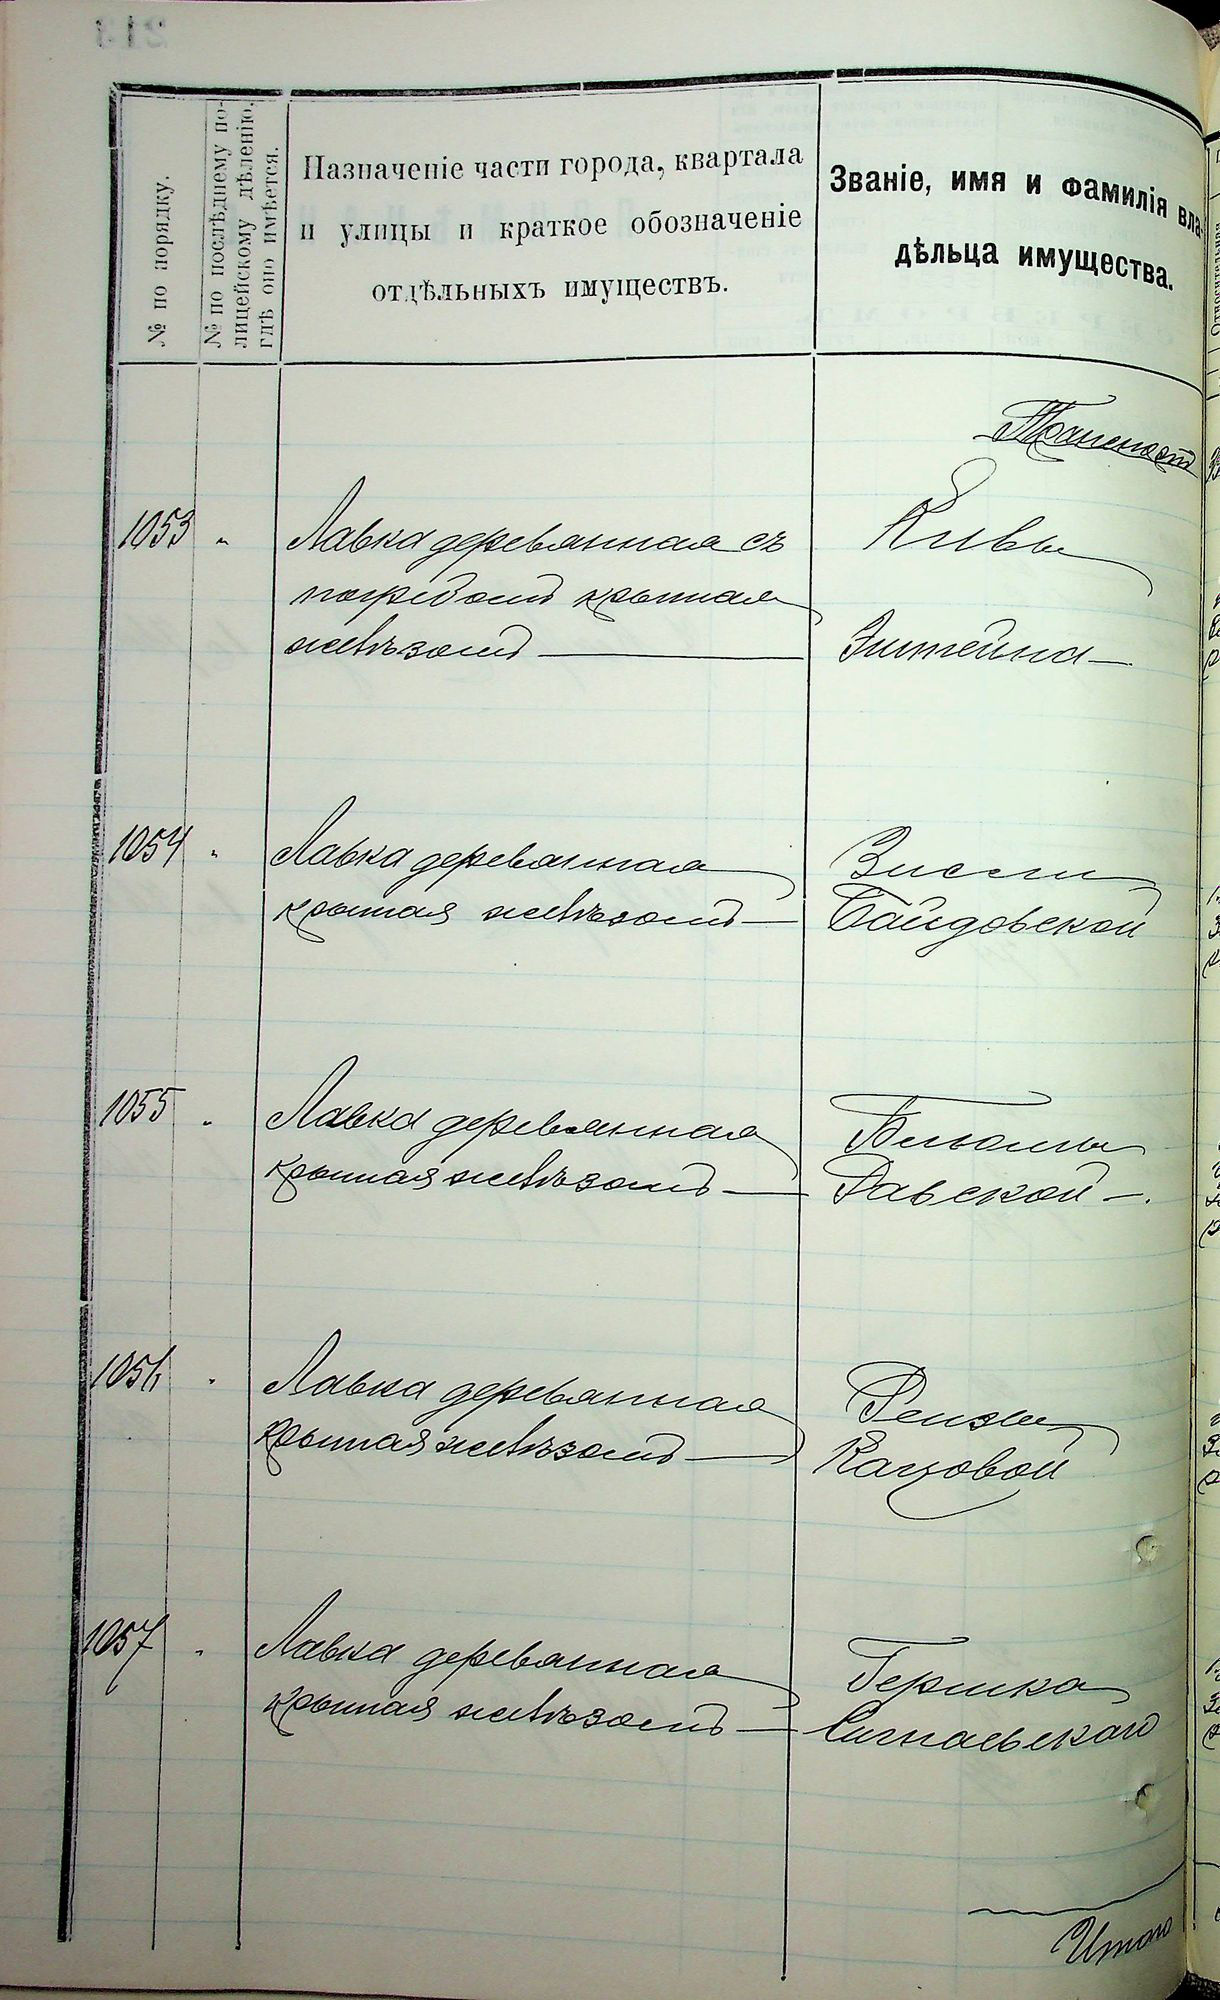 № по порядку.
№ по послѣднему по-
лицейскому дѣленію,
гдѣ оно имѣется.
Назначеніе части города, квартала
и улицы и краткое обозначеніе
отдѣльныхъ имуществъ.
Званіе, имя и фамилія вла-
дѣльца имущества.
Транспортъ
1053 " Лавка деревянная съ
погребомъ крытая
желѣзомъ —
Кивы
Эпштейна —
1054 " Лавка деревянная
крытая желѣзомъ —
Зисли
1055 " Лавка деревянная
крытая желѣзомъ —
Блюмы
Равской —.
1056 " Лавка деревянная
крытая желѣзомъ —
Рейзы
Кацовой
1057 " Лавка деревянная
крытая желѣзомъ —
Гершка
Итого